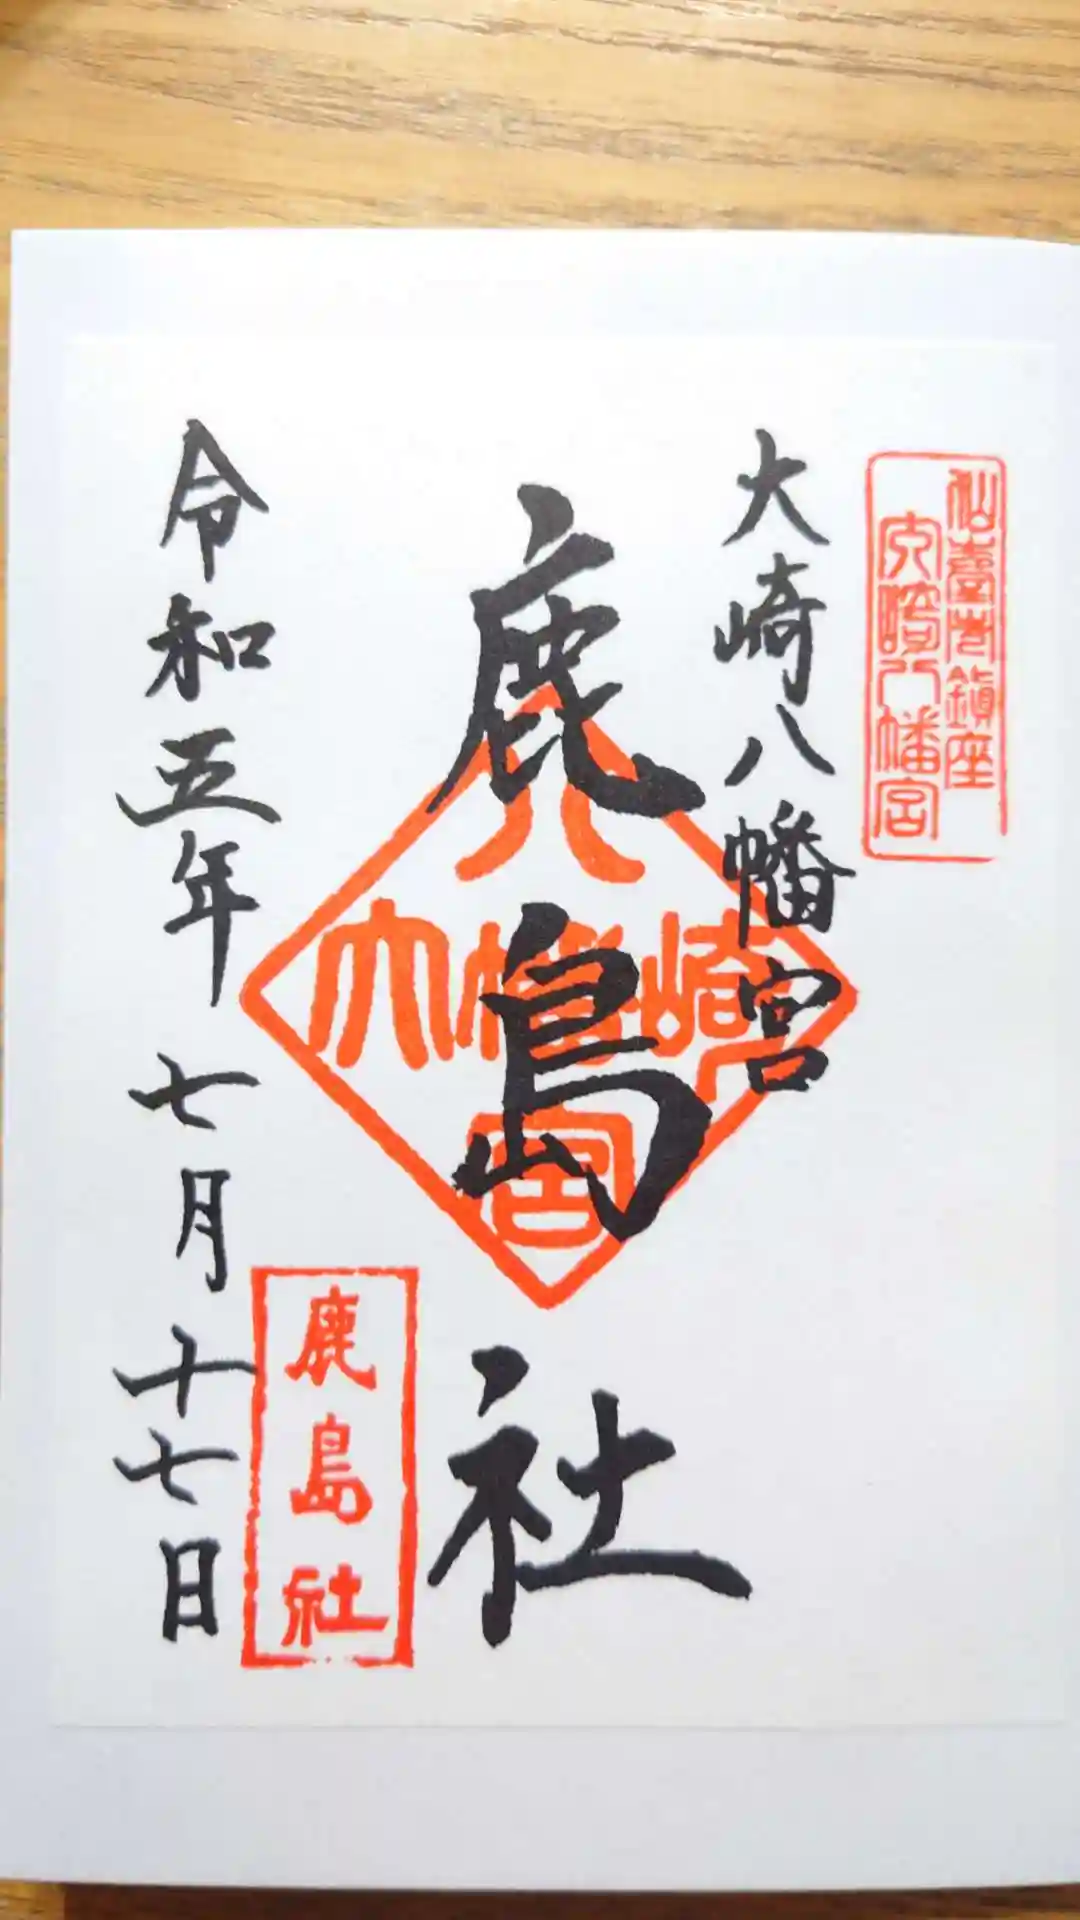 大崎八幡宮
鹿島社
鹿島社
令和五年 七月 十七日
八
大幡崎
宮
大崎八幡宮